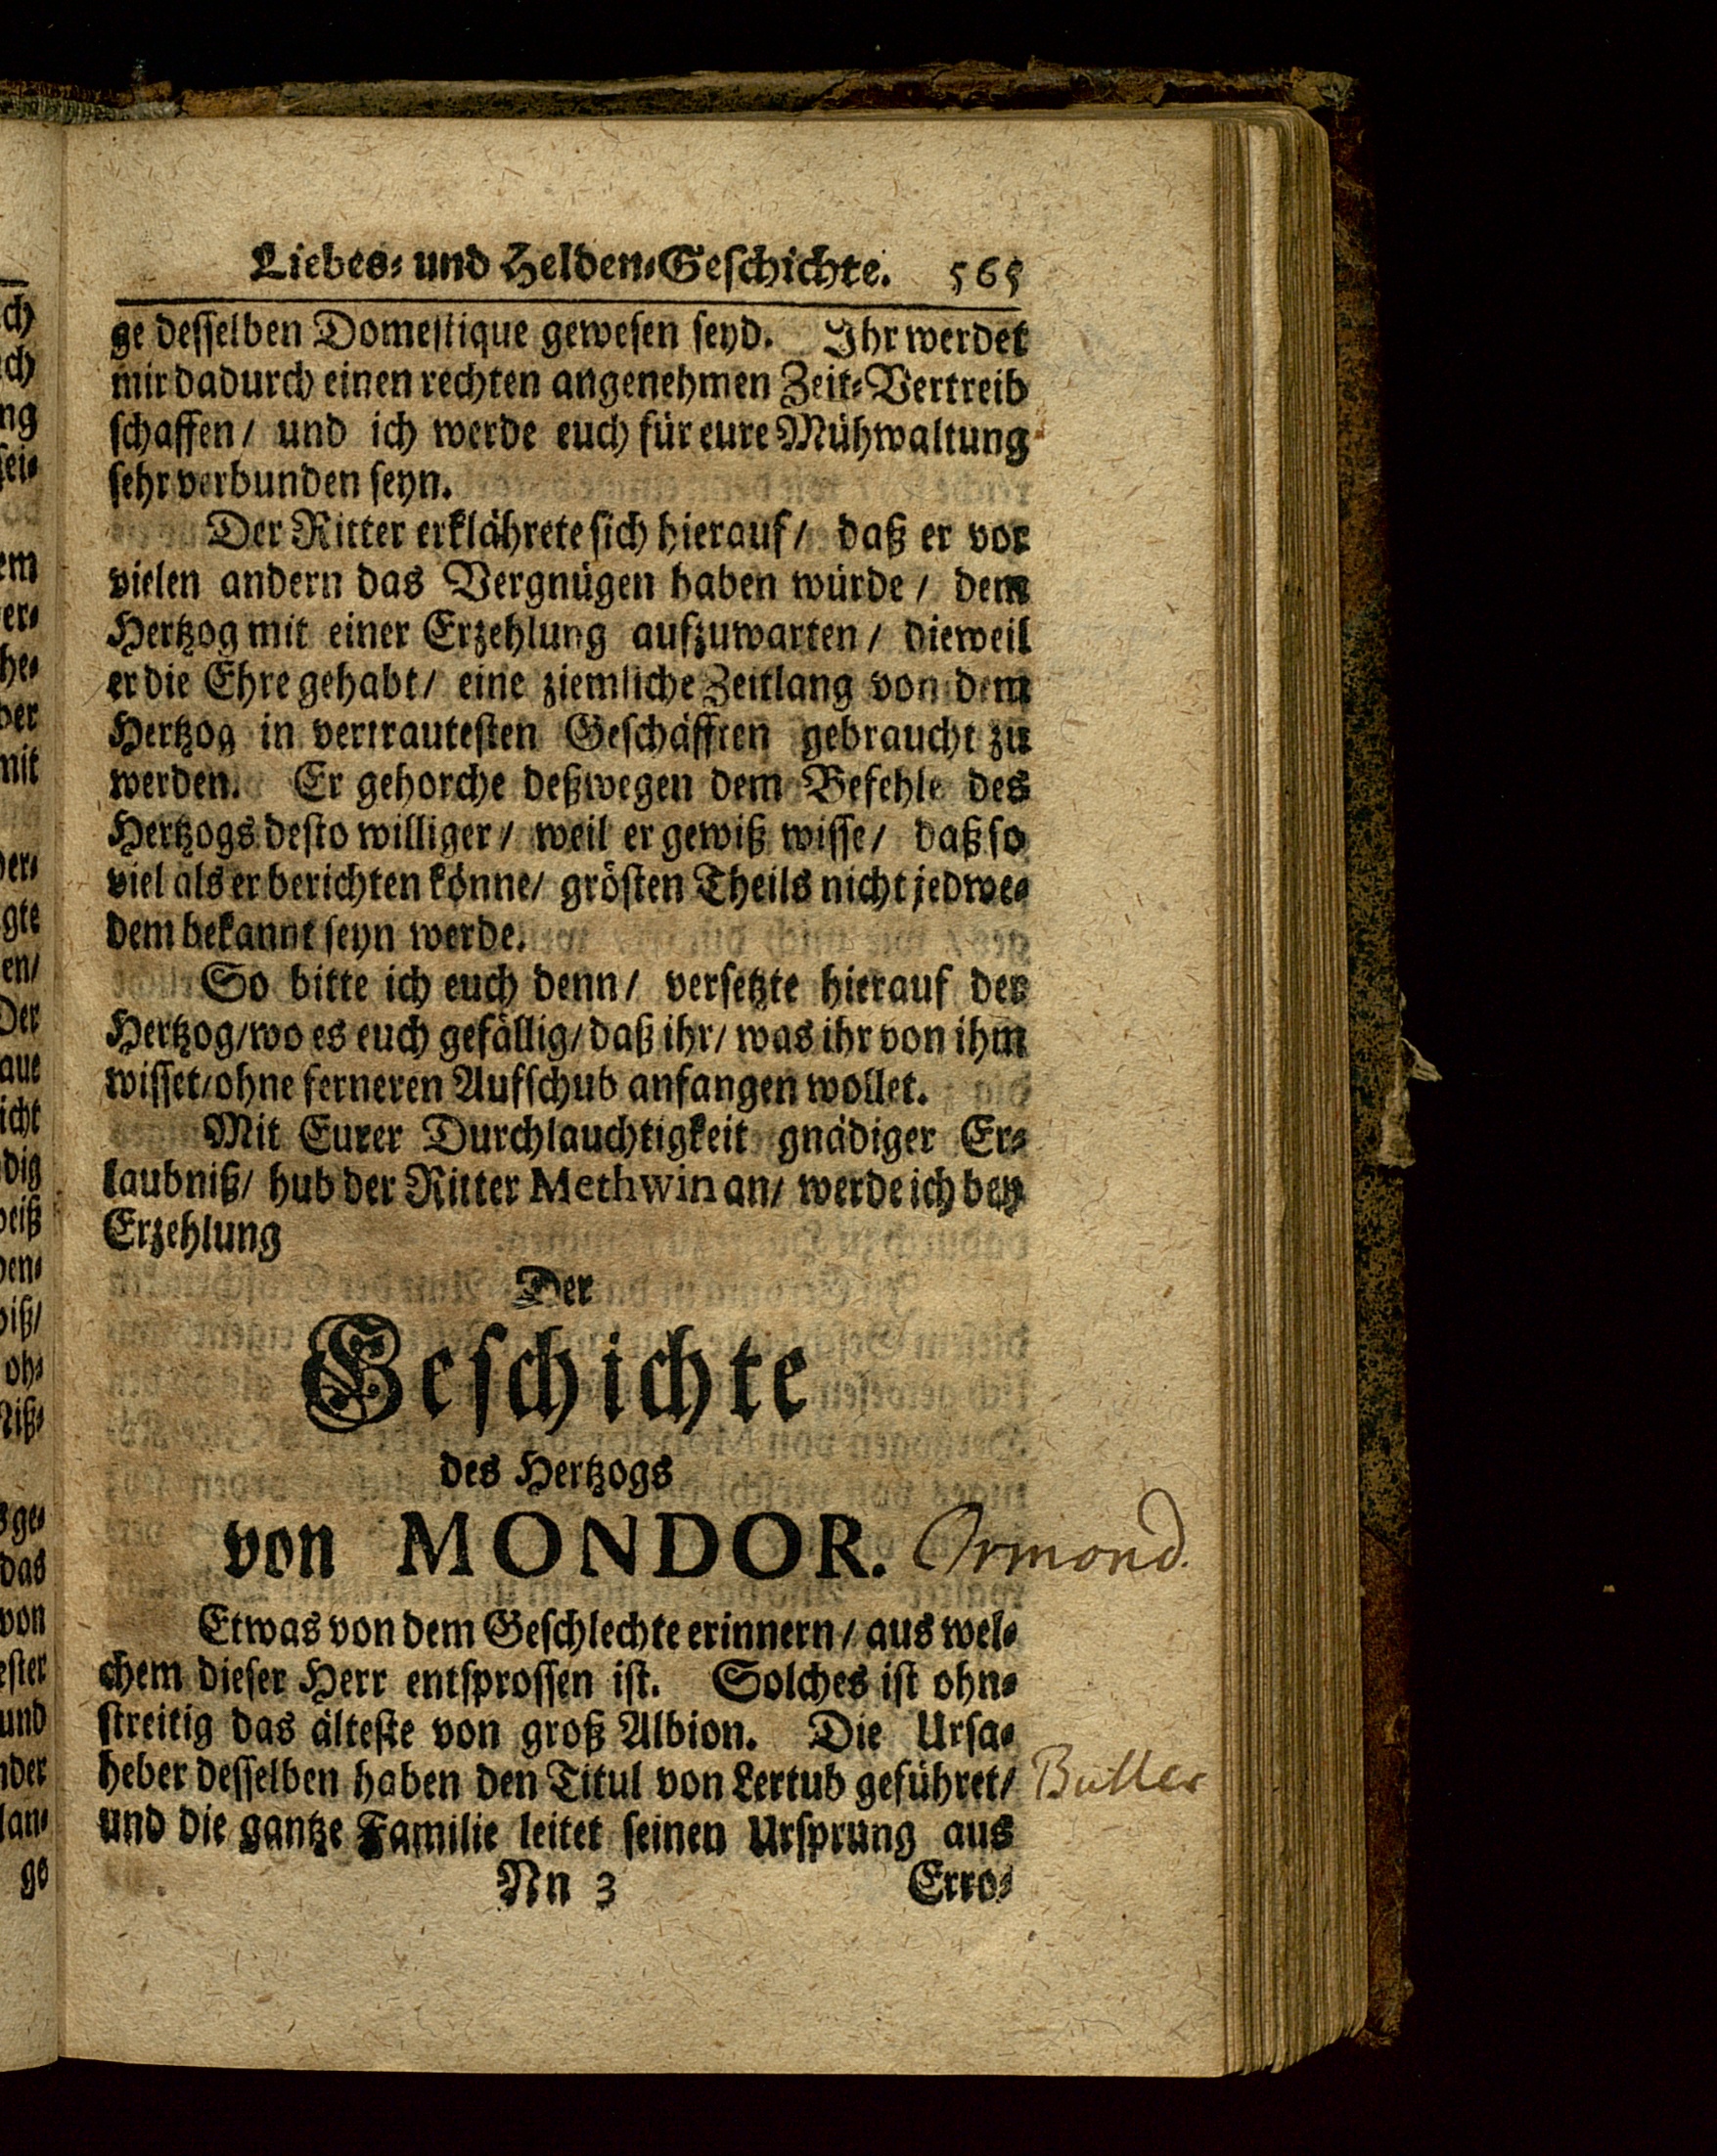 Liebes- und Helden-Geschichte. 565
ge desselben Domestique gewesen seyd. Ihr werdet
mir dadurch einen rechten angenehmen Zeit-Vertreib
schaffen/ und ich werde euch für eure Mühwaltung
sehr verbunden seyn.
Der Ritter erklährete sich hierauf/ daß er vor
vielen andern das Vergnügen haben würde/ dem
Hertzog mit einer Erzehlung aufzuwarten/ dieweil
er die Ehre gehabt/ eine ziemliche Zeitlang von dem
Hertzog in vertrautesten Geschäfften gebraucht zu
werden. Er gehorche deßwegen dem Befehle des
Hertzogs desto williger/ weil er gewiß wisse/ daß so
viel als er berichten könne/ grösten Theils nicht jedwe-
dem bekannt seyn werde.
So bitte ich euch denn/ versetzte hierauf der
Hertzog/ wo es euch gefällig/ daß ihr/ was ihr von ihm
wisset/ ohne ferneren Aufschub anfangen wollet.
Mit Eurer Durchlauchtigkeit gnädiger Er-
laubniß/ hub der Ritter Methwin an/ werde ich bey
Erzehlung
Der
Geschichte
des Hertzogs
von MONDOR. Ormond.
Etwas von dem Geschlechte erinnern/ aus wel-
chem dieser Herr entsprossen ist. Solches ist ohn-
streitig das älteste von groß Albion. Die Ursa-
heber desselben haben den Titul von Lertub geführet/ Butler
und die gantze Familie leitet seinen Ursprung aus
Nn 3 Erro-